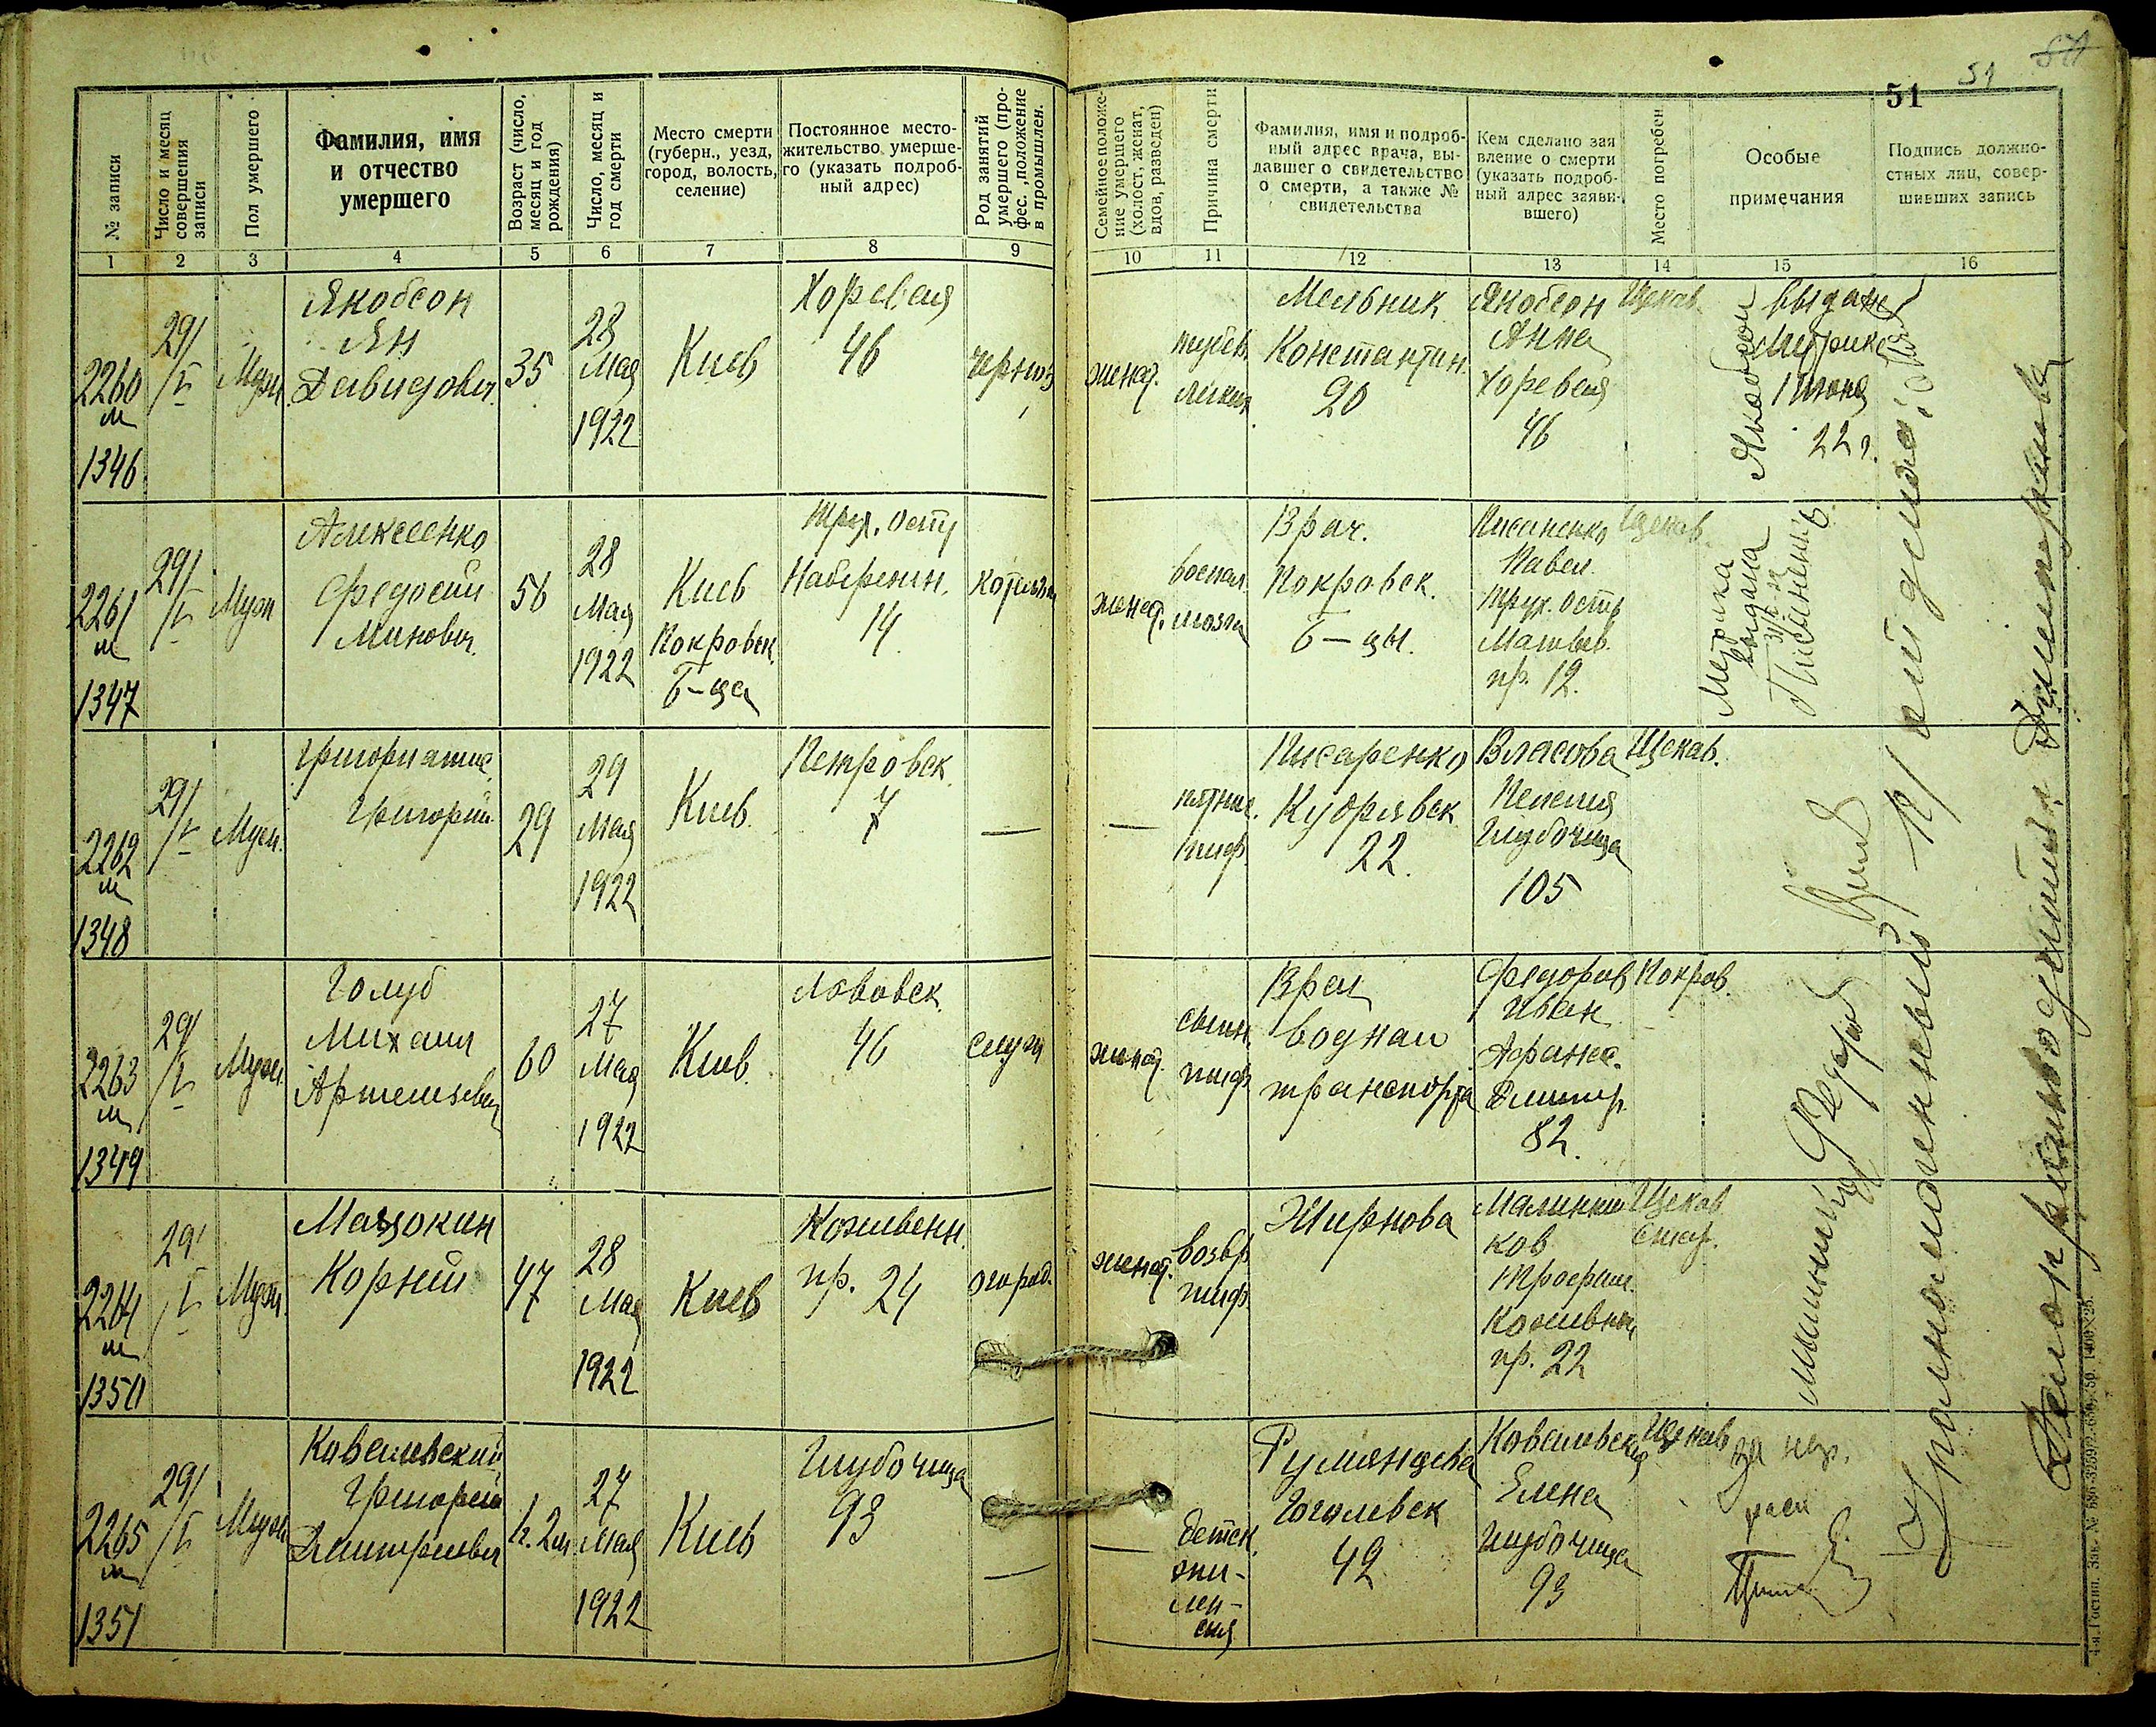 51
51
№ записи
Число и месяц совершения записи
Пол умершего
Фамилия, имя
и отчество
умершего
Возраст (число, месяц и год рождения)
Число, месяц и год смерти
Место смерти
(губерн., уезд,
город, волость,
селение)
Постоянное место-
жительство умерше-
го (указать подроб-
ный адрес)
Род занятий
умершего (про-
фес., положение
в промышлен.
Семейное положе-
ние умершего
(холост, женат,
вдов, разведен)
Причина смерти
Фамилия, имя и подроб-
ный адрес врача, вы-
давшего свидетельство
о смерти, а также №
свидетельства
Кем сделано зая
вление о смерти
(указать подроб-
ный адрес заяви-
вшего)
Место погребен.
Особые
примечания
Подпись должно-
стных лиц, совер-
шивших запись
1 2 3 4 5 6 7 8 9 10 11 12 13 14 15 16
2260
м
1346
29/V
Муж
Якобсон
Ян
Давидович
35
28
Мая
1922
Киев
Хоревая
46
женат.
туберк.
легких
Мельник
Константин.
20
Якобсон
Анна
Хоревая
46
Щекав.
Якобсон
выдан
Метрика
1 Июня
22 г.
2261
м
1347
29/V
Муж
Алексеенко
Федосий
Минович
56
28
Мая
1922
Киев
Покровск.
Б-ца
Трух. Остр
Набережн.
14
женат.
воспал.
мозга
Врач.
Покровск.
Б-цы.
Писаненко
Павел
Трух. Остр
Матвеев.
пр. 12.
Щекав.
Метрика
выдана
2262
м
1348
29/V
Муж.
Григорий
29
29
Мая
1922
Киев
Петровск.
7
—
—
тиф.
Писаренко
Кудрявск
22.
Власова
Пелагия
Глубочица
105
Щекав.
2263
м
1349
29/V
Муж.
Голуб
Михаил
Артемьевич
60
27
Мая
1922
Киев.
Львовск.
46
служ
женат.
сыпн.
тиф.
Врач
водная
транспорта
Федоров
Иван
Афанас.
Дмитр.
82.
Покров.
2264
м
1350
29/V
Муж.
Мацокин
Корний
47
28
Мая
1922
Киев
Кожевенн.
пр. 24
огород.
женат.
возвр.
тиф.
Жирнова
Малинни
ков
Трофим.
Кожевной
пр. 22
Щекав
стар.
2265
м
1351
29/V
Муж
Ковалевский
Григорий
Дмитриевич
27
Мая
1922
Киев
Глубочица
93
—
—
детск.
эпи-
леп-
сия
Румянцева
Гоголевск
42
Ковалевская
Елена
Глубочица
93
Щекав
Федоров
Уполномоченный
Делопроизводитель